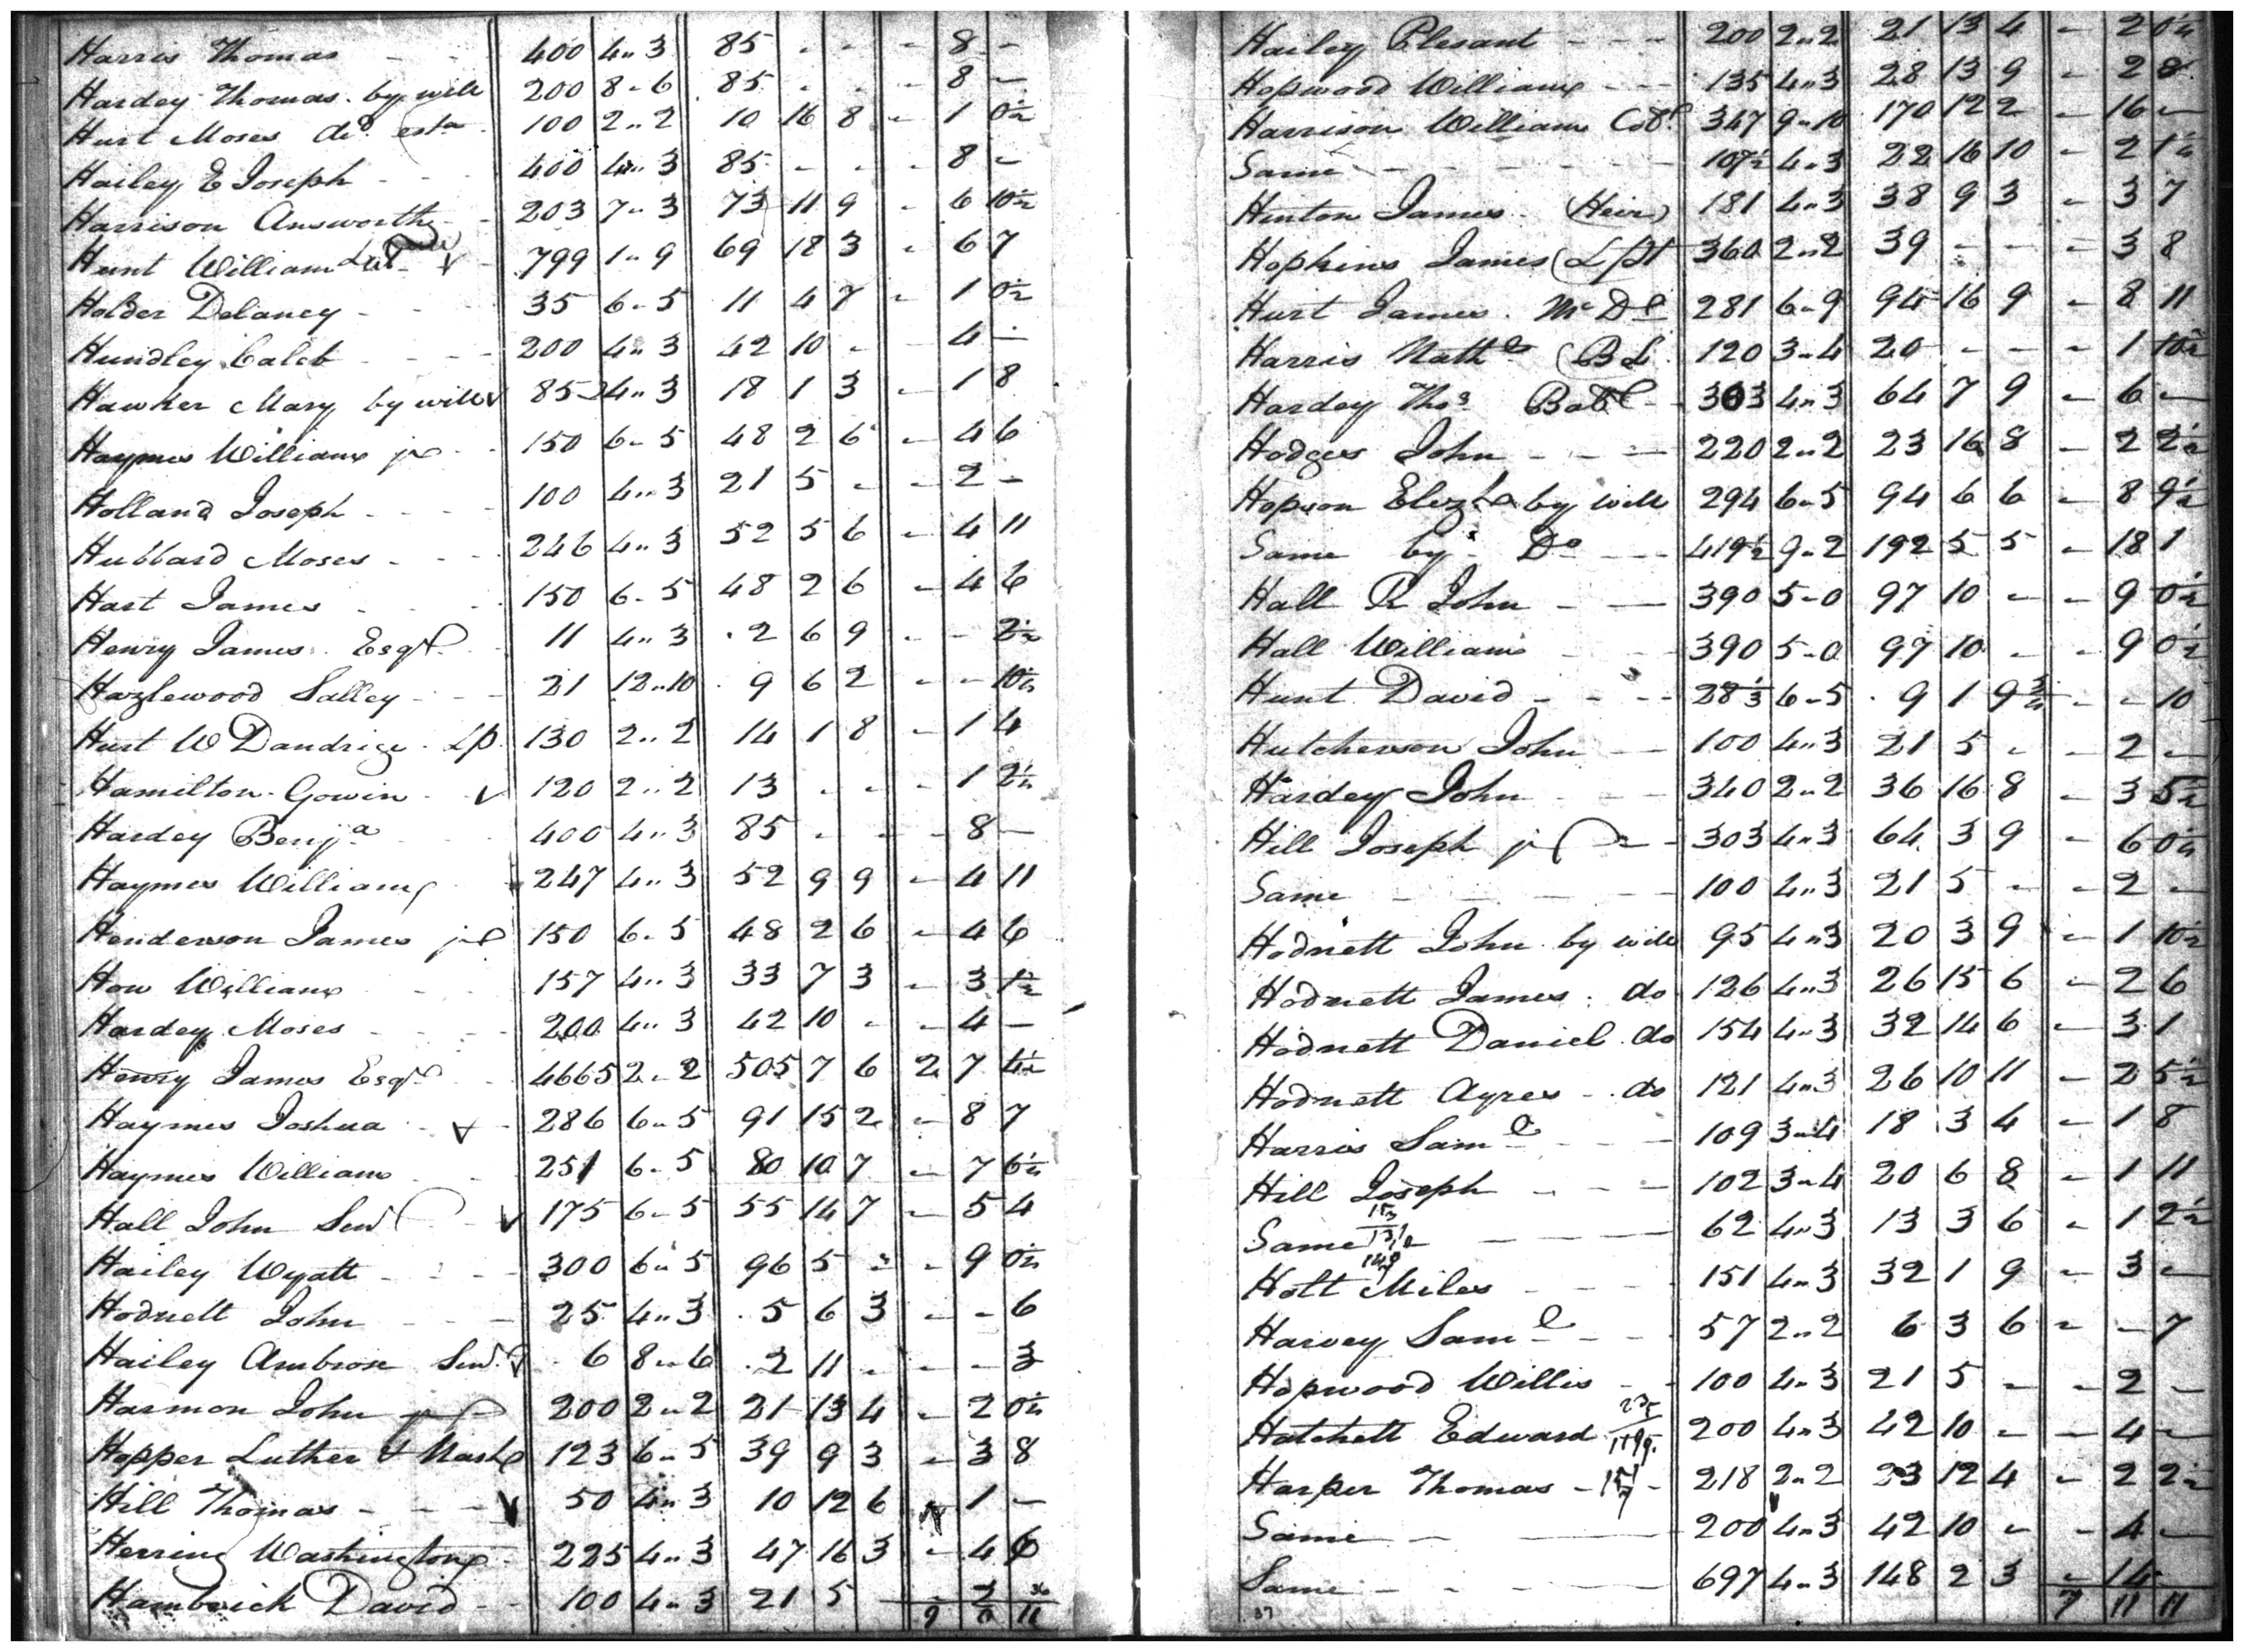 Harris Thomas - - 400 4..3 85 - - - 8 -
Hardey Thomas. by will 200 8-6 85 - - - 8 -
Hurt Moses decd. esta 100 2..2 10 16 8 - 1 0½
Hailey E Joseph - - 400 4..3 85 - - - 8 -
Harrison Answorth - 203 7-3 73 11 9 - 6 10½
Hunt William 799 1-9 69 18 3 - 6 7
Holder Delaney - - 35 6-5 11 4 7 - 1 0½
Hundley Caleb - - - 200 4..3 42 10 - - 4 -
Hawker Mary by will 85 4..3 18 1 3 - 1 8
Haymes William jr - 150 6-5 48 2 6 - 4 6
Holland Joseph - - - 100 4..3 21 5 - - 2 -
Hubbard Moses - - 246 4..3 52 5 6 - 4 11
Hart James - - 150 6-5 48 2 6 - 4 6
Henry James Esqr. 11 4..3 2 6 9 - - 2½
Hazlewood Salley - - 21 12..10 9 6 2 - - 10½
Hurt W Dandrige Lp. 130 2..2 14 1 8 - 1 4
Hamilton Gowin - 120 2..2 13 - - - 1 2½
Hardey Benja 400 4..3 85 - - - 8 -
Haymes William 247 4..3 52 9 9 - 4 11
Henderson James jr 150 6-5 48 2 6 - 4 6
How William - - 157 4..3 33 7 3 - 3 1½
Hardey Moses - - - 200 4..3 42 10 - - 4 -
Henry James Esqr. 4665 2..2 505 7 6 2 7 4½
Haymes Joshua - 286 6-5 91 15 2 - 8 7
Haymes William 251 6-5 80 10 7 - 7 6½
Hall John Senr 175 6-5 55 14 7 - 5 4
Hailey Wyatt - - - 300 6-5 96 5 - - 9 0½
Hodnett John - - - 25 4..3 5 6 3 - - 6
Hailey Ambrose Senr. 6 8-6 2 11 - - - 3
Harmon John jr 200 2..2 21 13 4 - 2 0½
Hopper Luther & Nash 123 6-5 39 9 3 - 3 8
Hill Thomas - - - 50 4..3 10 12 6 1 -
Herring Washington - 225 4..3 47 16 3 - 4 6
Hambrick David - - 100 4..3 21 5 - 2
9 0 11
Hailey Plesant - - - 200 2..2 21 13 4 - 2 0½
Hopwood William - - 135 4..3 28 13 9 - 2 8
Harrison William 347 9-10 170 12 2 - 16 -
Same - - - - - 107½ 4..3 22 16 10 - 2 1½
Hinton James (Heir) 181 4..3 38 9 3 - 3 7
Hopkins James (L pt 360 2..2 39 - - - 3 8
Hurt James. McDl 281 6-9 94 16 9 - 8 11
Harris Nathl (B L. 120 3-4 20 - - - 1 10½
Hardey Thos. 303 4..3 64 7 9 - 6 -
Hodges John - - - 220 2..2 23 16 8 - 2 2½
Hopson Elizth by will 294 6-5 94 6 6 - 8 9½
Same by Do - - 419½ 9-2 192 5 5 - 18 1
Hall R John - - 390 5-0 97 10 - - 9 0½
Hall William - - 390 5-0 97 10 - - 9 0½
Hunt David - - - - 28⅓ 6-5 9 1 9¾ - - 10
Hutcherson John - 100 4..3 21 5 - - 2 -
Hardey John - - - 340 2..2 36 16 8 - 3 5½
Hill Joseph jr - - 303 4..3 64 3 9 - 6 0½
Same - - - - - 100 4..3 21 5 - - 2 -
Hodnett John by will 95 4..3 20 3 9 - 1 10½
Hodnett James. do 126 4..3 26 15 6 - 2 6
Hodnett Daniel do 154 4..3 32 14 6 - 3 1
Hodnett Ayres - do 121 4..3 26 10 11 - 2 5½
Harris Saml - - - 109 3-4 18 3 4 - 1 8
Hill Joseph - - - 102 3-4 20 6 8 - 1 11
Same - - - 62 4..3 13 3 6 - 1 2½
Hott Miles - - - 151 4..3 32 1 9 - 3 -
Harvey Saml - - - 57 2..2 6 3 6 - - 7
Hopwood Willis - - 100 4..3 21 5 - - 2 -
Hatchett Edward 200 4..3 42 10 - - 4 -
Harper Thomas - 218 2..2 23 12 4 - 2 2½
Same - - 200 4..3 42 10 - - 4 -
Same - - - 697 4..3 148 2 3 - 14
37 7 11 11